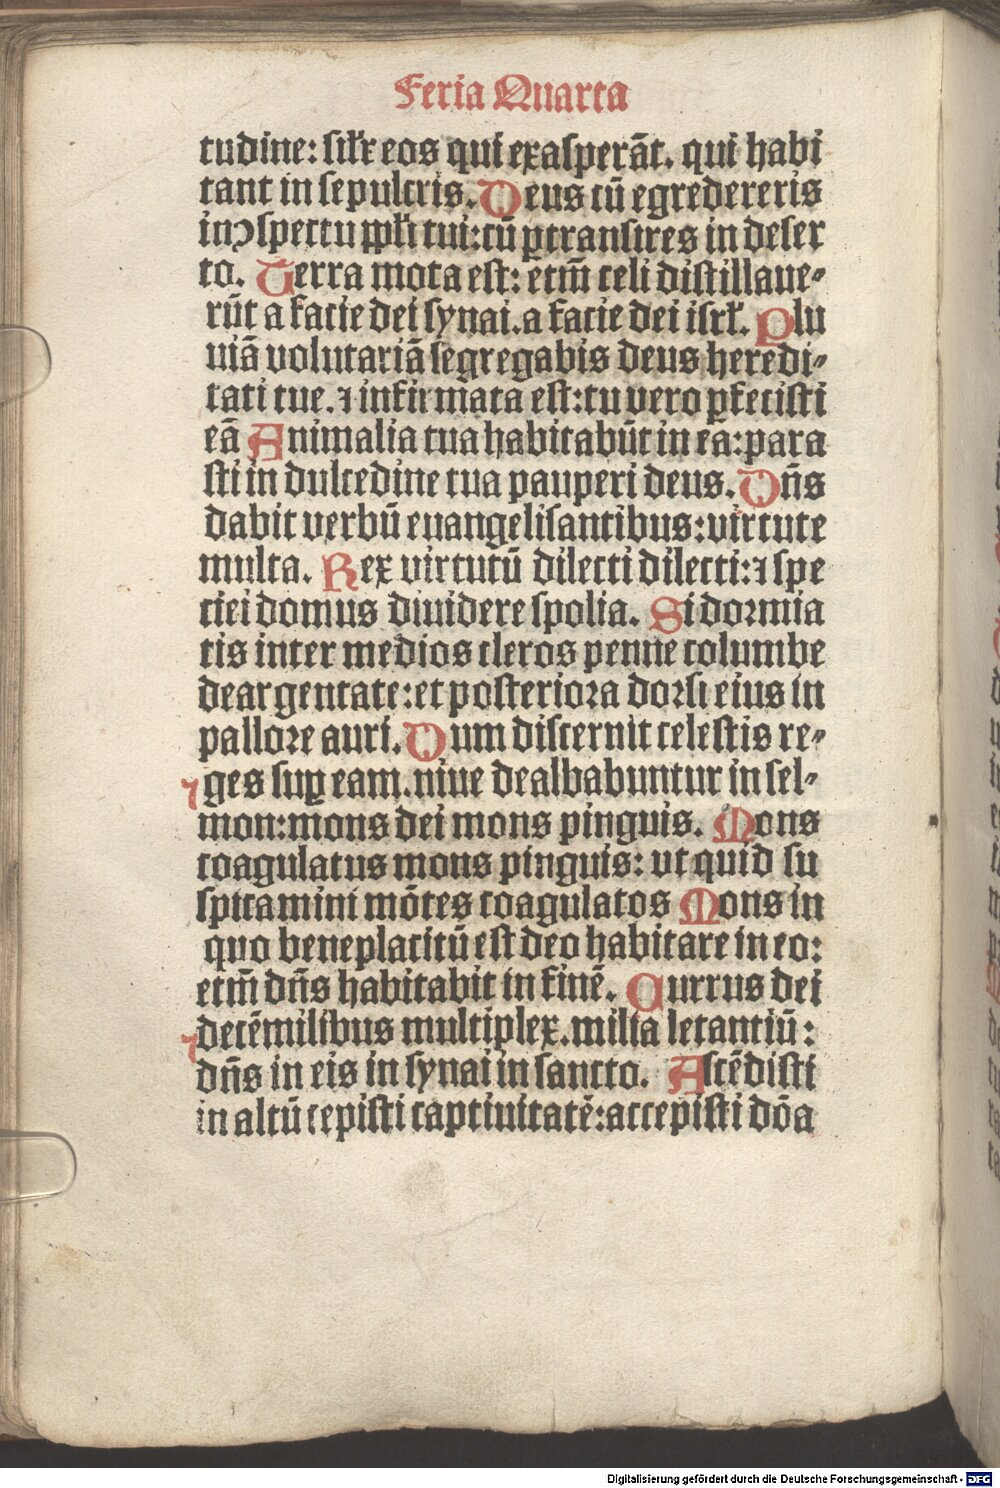 Feria Quarta
tudine: silr eos qui exasperāt. qui habi
tant in sepulcris. Deus cū egredereris
in ꝯspectu ppli tui: cū ꝑtransires in deser
to. Terra mota est: etm̄ celi distillaue⸗
rūt a facie dei synai. a facie dei isrl. Plu
uiā volutariā segregabis deus heredi⸗
tati tue. ⁊ infirmata est: tu vero ꝑfecisti
eā Animalia tua habitabūt in ea: para
sti in dulcedine tua pauperi deus. Dn̄s
dabit verbū euangelisantibus: virtute
multa. Rex virtutū dilecti dilecti: ⁊ spe
ciei domus diuidere spolia. Si dormia
tis inter medios cleros penne columbe
deargentate: et posteriora dorsi eius in
pallore auri. Dum discernit celestis re⸗
ges suꝑ eam. niue dealbabuntur in sel⸗
mon: mons dei mons pinguis. Mons
coagulatus mons pinguis: vt quid su
spicamini mōtes coagulatos Mons in
quo beneplacitū est deo habitare in eo:
etm̄ dn̄s habitabit in finē. Currus dei
decēmilibus multiplex. milia letantiū:
dn̄s in eis in synai in sancto. Ascēdisti
in altū cepisti captiuitatē: accepisti dōa
Digitalisierung gefördert durch die Deutsche Forschungsgemeinschaft - DFG